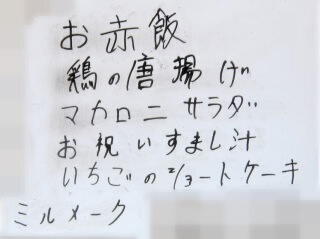 お赤飯
鶏の唐揚げ
マカロニサラダ
お祝いすまし汁
いちごのショートケーキ
ミルメーク